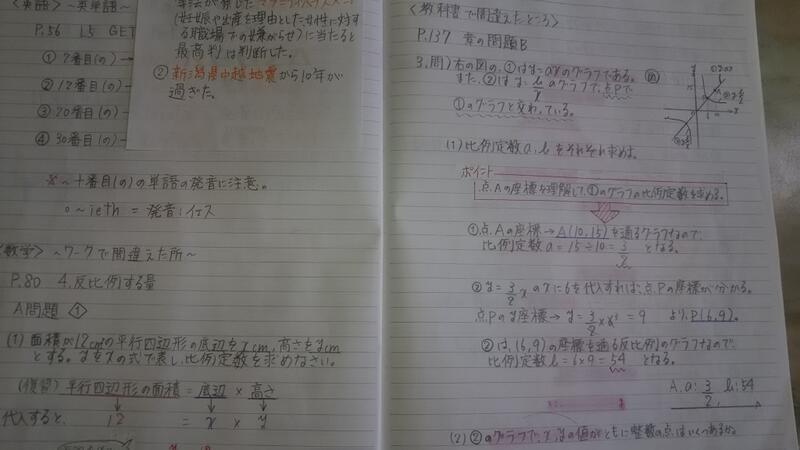 <英語> ~英単語~
P.56 L5 GET
① 2番目(の) →
② 12番目(の) →
③ 20番目(の) →
④ 30番目(の) →
※~十番目(の)の単語の発音に注意。
○~ieth = 発音:イス
(妊娠や出産を理由とした女性に対す
る職場での嫌がらせ)に当たると
最高判は判断した。
② 新潟県中越地震から10年が
過ぎた。
<数学> ~ワークで間違えた所~
P.80 4.反比例する量
A問題 ①
(1) 面積が12cm²の平行四辺形の底辺をxcm,高さをycm
とする。yをxの式で表し,比例定数を求めなさい。
(復習)平行四辺形の面積 = 底辺 × 高さ
代入すると、 12 = x × y
<教科書で間違えたところ>
P.137 章の問題B
3.問)右の図の、①はy=axのグラフである。
また、②はy=b/xのグラフで、点Pで
①のグラフと交わっている。
(1)比例定数a,bをそれぞれ求めよ。
ポイント
点Aの座標を理解して、①のグラフの比例定数を求める。
①点Aの座標→A(10,15)を通るグラフなので
比例定数a = 15÷10 = 3/2 となる。
②y=3/2xのxに6を代入すれば、点Pの座標が分かる。
点Pのy座標→ y=3/2×6 = 9 よりP(6,9)。
②は、(6,9)の座標を通る反比例のグラフなので、
比例定数b = 6×9 = 54 となる。
A. a:3/2 b:54
(2) ②のグラフで、x,yの値がともに整数の点はいくつあるか。